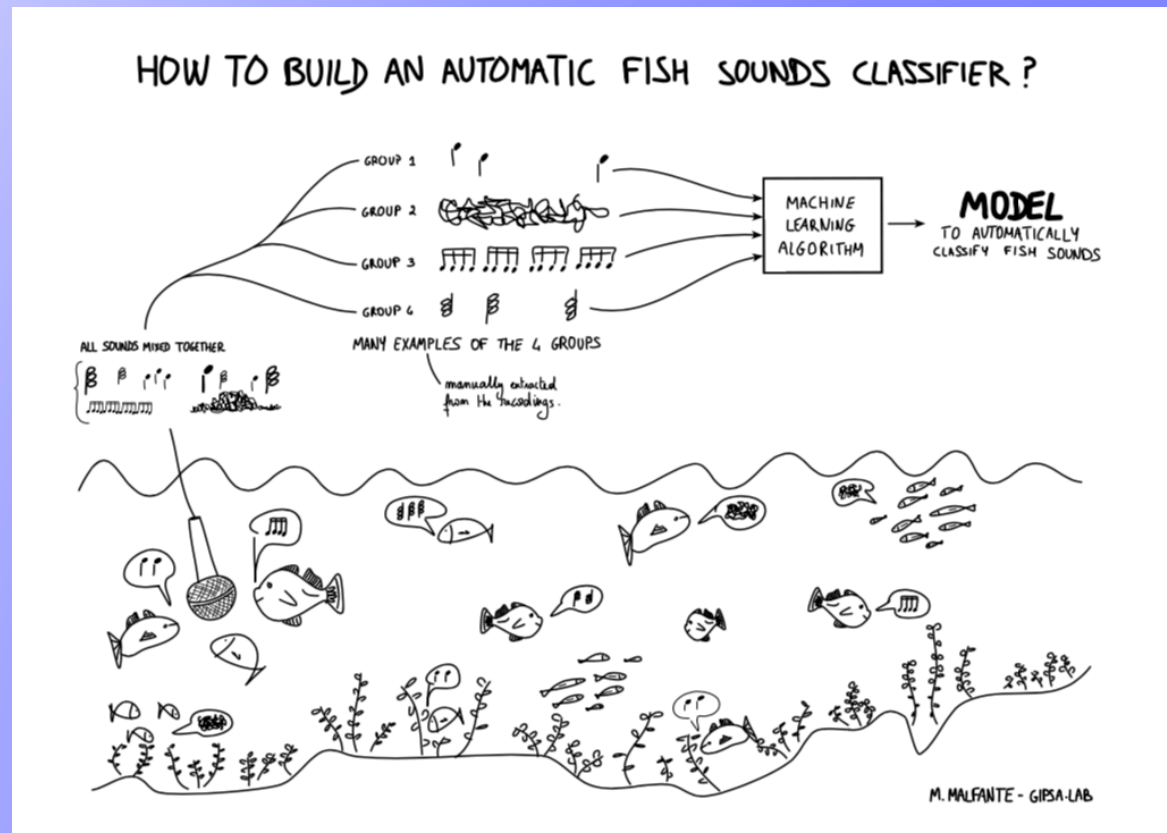 HOW TO BUILD AN AUTOMATIC FISH SOUNDS CLASSIFIER ?
GROUP 1
GROUP 2
GROUP 3
GROUP 4
MACHINE
LEARNING
ALGORITHM
MODEL
TO AUTOMATICALLY
CLASSIFY FISH SOUNDS
ALL SOUNDS MIXED TOGETHER
MANY EXAMPLES OF THE 4 GROUPS
manually extracted
from the recordings.
M. MALFANTE - GIPSA-LAB